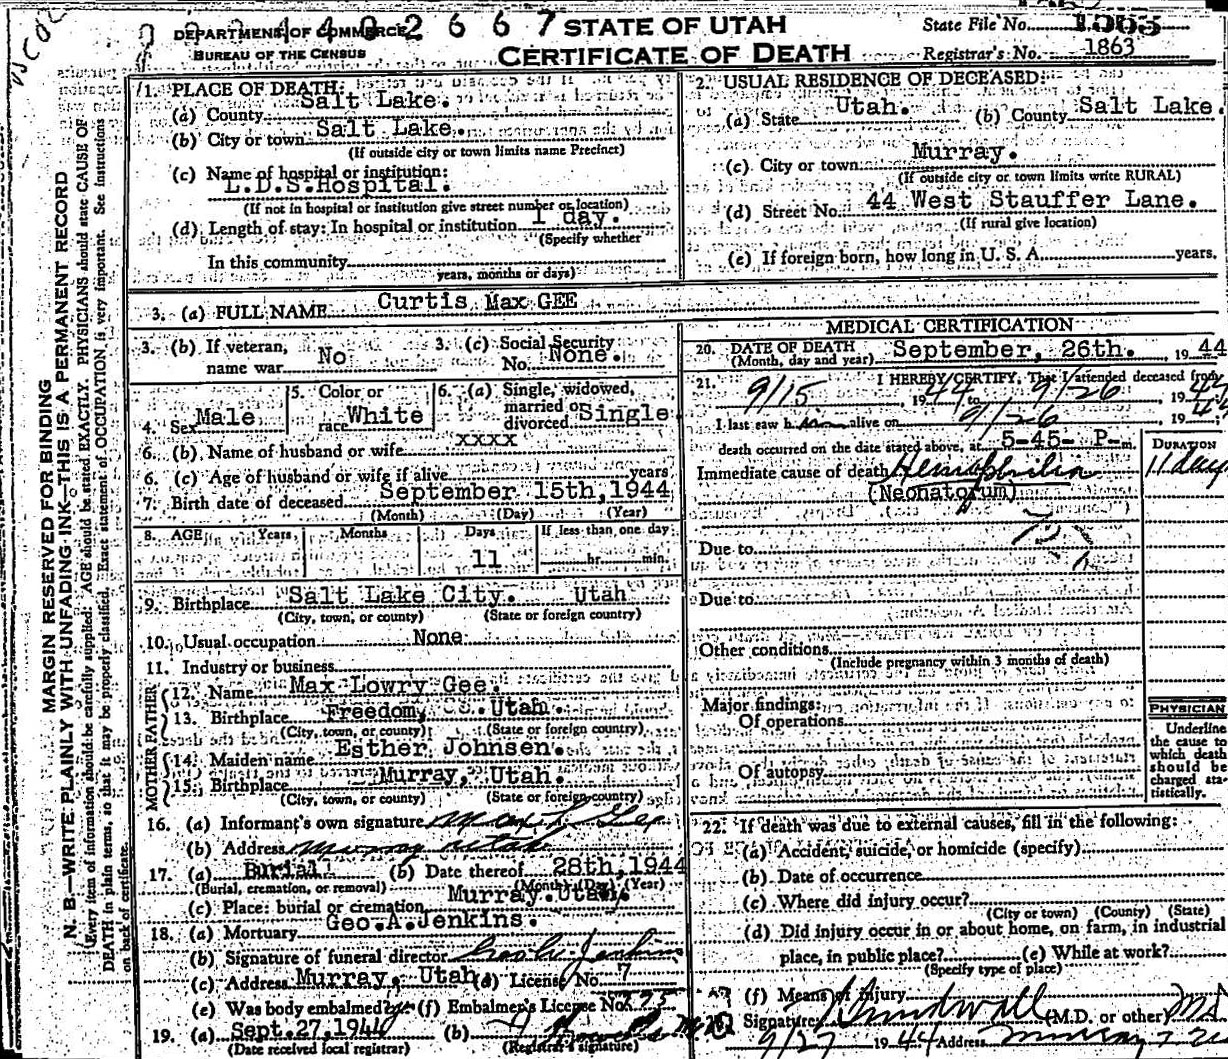 2 6 6 7
STATE OF UTAH
DEPARTMENT OF COMMERCE
BUREAU OF THE CENSUS
CERTIFICATE OF DEATH
State File No.
Registrar's No. 1863
MARGIN RESERVED FOR BINDING
N. B.—WRITE PLAINLY WITH UNFADING INK—THIS IS A PERMANENT RECORD
Every item of information should be carefully supplied. AGE should be stated EXACTLY. PHYSICIANS should state CAUSE OF
DEATH in plain terms, so that it may be properly classified. Exact statement of OCCUPATION is very important. See instructions
on back of certificate.
1. PLACE OF DEATH:
(a) County Salt Lake.
(b) City or town Salt Lake.
(If outside city or town limits name Precinct)
(c) Name of hospital or institution:
L.D.S. Hospital.
(If not in hospital or institution give street number or location)
(d) Length of stay: In hospital or institution 1 day.
(Specify whether
In this community
years, months or days)
2. USUAL RESIDENCE OF DECEASED:
(a) State Utah. (b) County Salt Lake.
(c) City or town Murray.
(If outside city or town limits write RURAL)
(d) Street No. 44 West Stauffer Lane.
(If rural give location)
(e) If foreign born, how long in U. S. A. years.
3. (a) FULL NAME Curtis Max GEE
3. (b) If veteran, name war No
3. (c) Social Security No. None.
4. Sex Male
5. Color or race White
6. (a) Single, widowed, married or divorced Single
6. (b) Name of husband or wife xxxx
6. (c) Age of husband or wife if alive years
7. Birth date of deceased September 15th, 1944
(Month) (Day) (Year)
8. AGE Years Months Days If less than one day
11 hr. min.
9. Birthplace Salt Lake City. Utah
(City, town, or county) (State or foreign country)
10. Usual occupation None
11. Industry or business
FATHER
12. Name Max Lowry Gee.
13. Birthplace Freedom, Utah.
(City, town, or county) (State or foreign country)
MOTHER
14. Maiden name Esther Johnsen.
15. Birthplace Murray, Utah.
(City, town, or county) (State or foreign country)
16. (a) Informant's own signature Max L Gee
(b) Address Murray Utah
17. (a) Burial (b) Date thereof 28th, 1944
(Burial, cremation, or removal) (Month) (Day) (Year)
(c) Place: burial or cremation Murray. Utah.
18. (a) Mortuary Geo. A. Jenkins.
(b) Signature of funeral director Jenkins
(c) Address Murray, Utah (d) License No. 7
(e) Was body embalmed? (f) Embalmer's License No.
19. (a) Sept. 27, 1944 (b)
(Date received local registrar) (Registrar's signature)
MEDICAL CERTIFICATION
20. DATE OF DEATH September, 26th. , 1944
(Month, day and year)
21. I HEREBY CERTIFY, That I attended deceased from
9/15, 1944 to 9/26, 1944
I last saw him alive on 9/26, 1944
death occurred on the date stated above, at 5-45- P-m.
DURATION
Immediate cause of death Hemophilia 11 day
(Neonatorum)
Due to
Due to
Other conditions
(Include pregnancy within 3 months of death)
Major findings:
Of operations
Of autopsy
PHYSICIAN
Underline
the cause to
which death
should be
charged sta-
tistically.
22. If death was due to external causes, fill in the following:
(a) Accident, suicide, or homicide (specify)
(b) Date of occurrence
(c) Where did injury occur?
(City or town) (County) (State)
(d) Did injury occur in or about home, on farm, in industrial
place, in public place? (e) While at work?
(Specify type of place)
(f) Means of Injury
Signature (M.D. or other) MD
9/27 1944 Address Murray